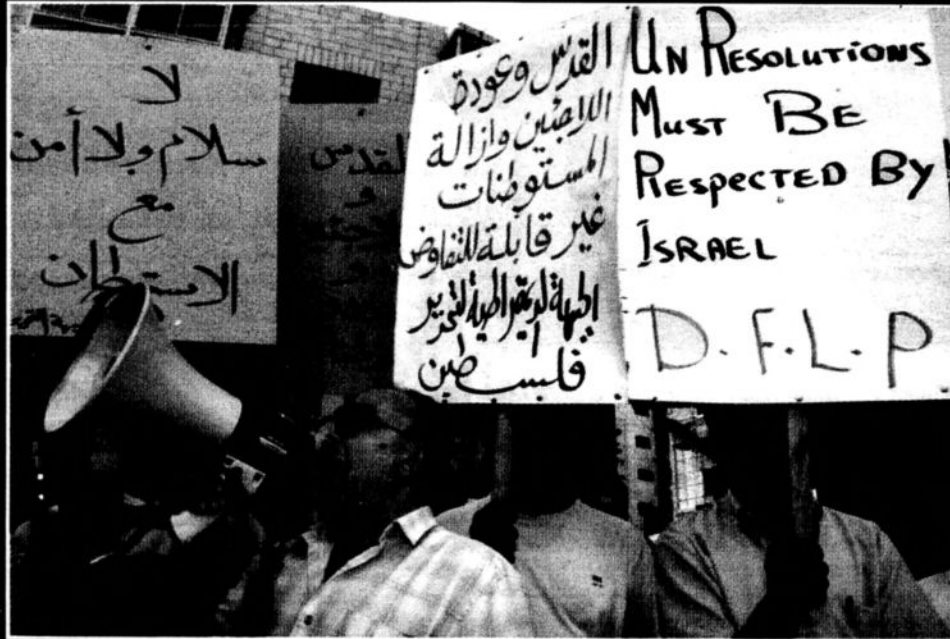 لا
سلام ولا أمن
مع
الاستيطان
القدس
و
القدس وعودة
اللاجئين وازالة
المستوطنات
غير قابلة للتفاوض
الجبهة الديمقراطية لتحرير
فلسطين
UN RESOLUTIONS
MUST BE
RESPECTED BY
ISRAEL
D.F.L.P.